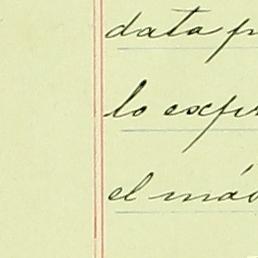 data p
lo expr
el má